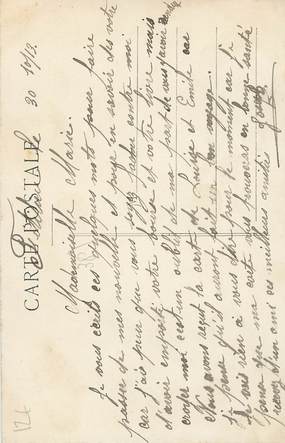 CARTE POSTALE
le 30 10/13.
Mademoiselle Marie.
Je vous écris ces quelques mots pour faire
passer de mes nouvelles et pour en savoir des votre
car j'ais peur que vous soyez fachez contre moi
d'avoir emporté votre et votre livre mais
croyez moi c'est un oubli de ma part de vous l'avoir
Nous avons reçut la carte de Louise et Emile car
je pense qu'il auront fait un bon voyage.
Je vois rien a vous dire pour le moment car j'é
pense que ma carte vous trouveras en bonne santé
recevez d'un ami ces meilleurs amitiés
124